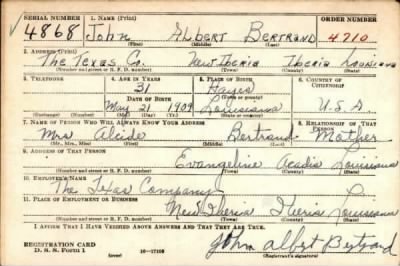 SERIAL NUMBER 1. NAME (Print) ORDER NUMBER
4868 John Albert Bertrand 4710
(First) (Middle) (Last)
2. ADDRESS (Print)
The Texas Co. New Iberia Iberia Louisiana
(Number and street or R. F. D. number) (Town) (County) (State)
3. TELEPHONE 4. AGE IN YEARS 5. PLACE OF BIRTH 6. COUNTRY OF CITIZENSHIP
31 Hayes
DATE OF BIRTH (Town or county)
May 21 1909 Louisiana U.S.A.
(Exchange) (No.) (Mo.) (Day) (Yr.) (State or country)
7. NAME OF PERSON WHO WILL ALWAYS KNOW YOUR ADDRESS 8. RELATIONSHIP OF THAT PERSON
Mrs Alcide Bertrand Mother
(Mr., Mrs., Miss) (First) (Middle) (Last)
9. ADDRESS OF THAT PERSON
Evangeline Acadia Louisiana
(Number and street or R. F. D. number) (Town) (County) (State)
10. EMPLOYER'S NAME
The Texas Company
11. PLACE OF EMPLOYMENT OR BUSINESS
New Iberia Iberia Louisiana
(Number and street or R. F. D. number) (Town) (County) (State)
I AFFIRM THAT I HAVE VERIFIED ABOVE ANSWERS AND THAT THEY ARE TRUE.
John Albert Bertrand
REGISTRATION CARD
D. S. S. Form 1 (over) 16-17105 (Registrant's signature)